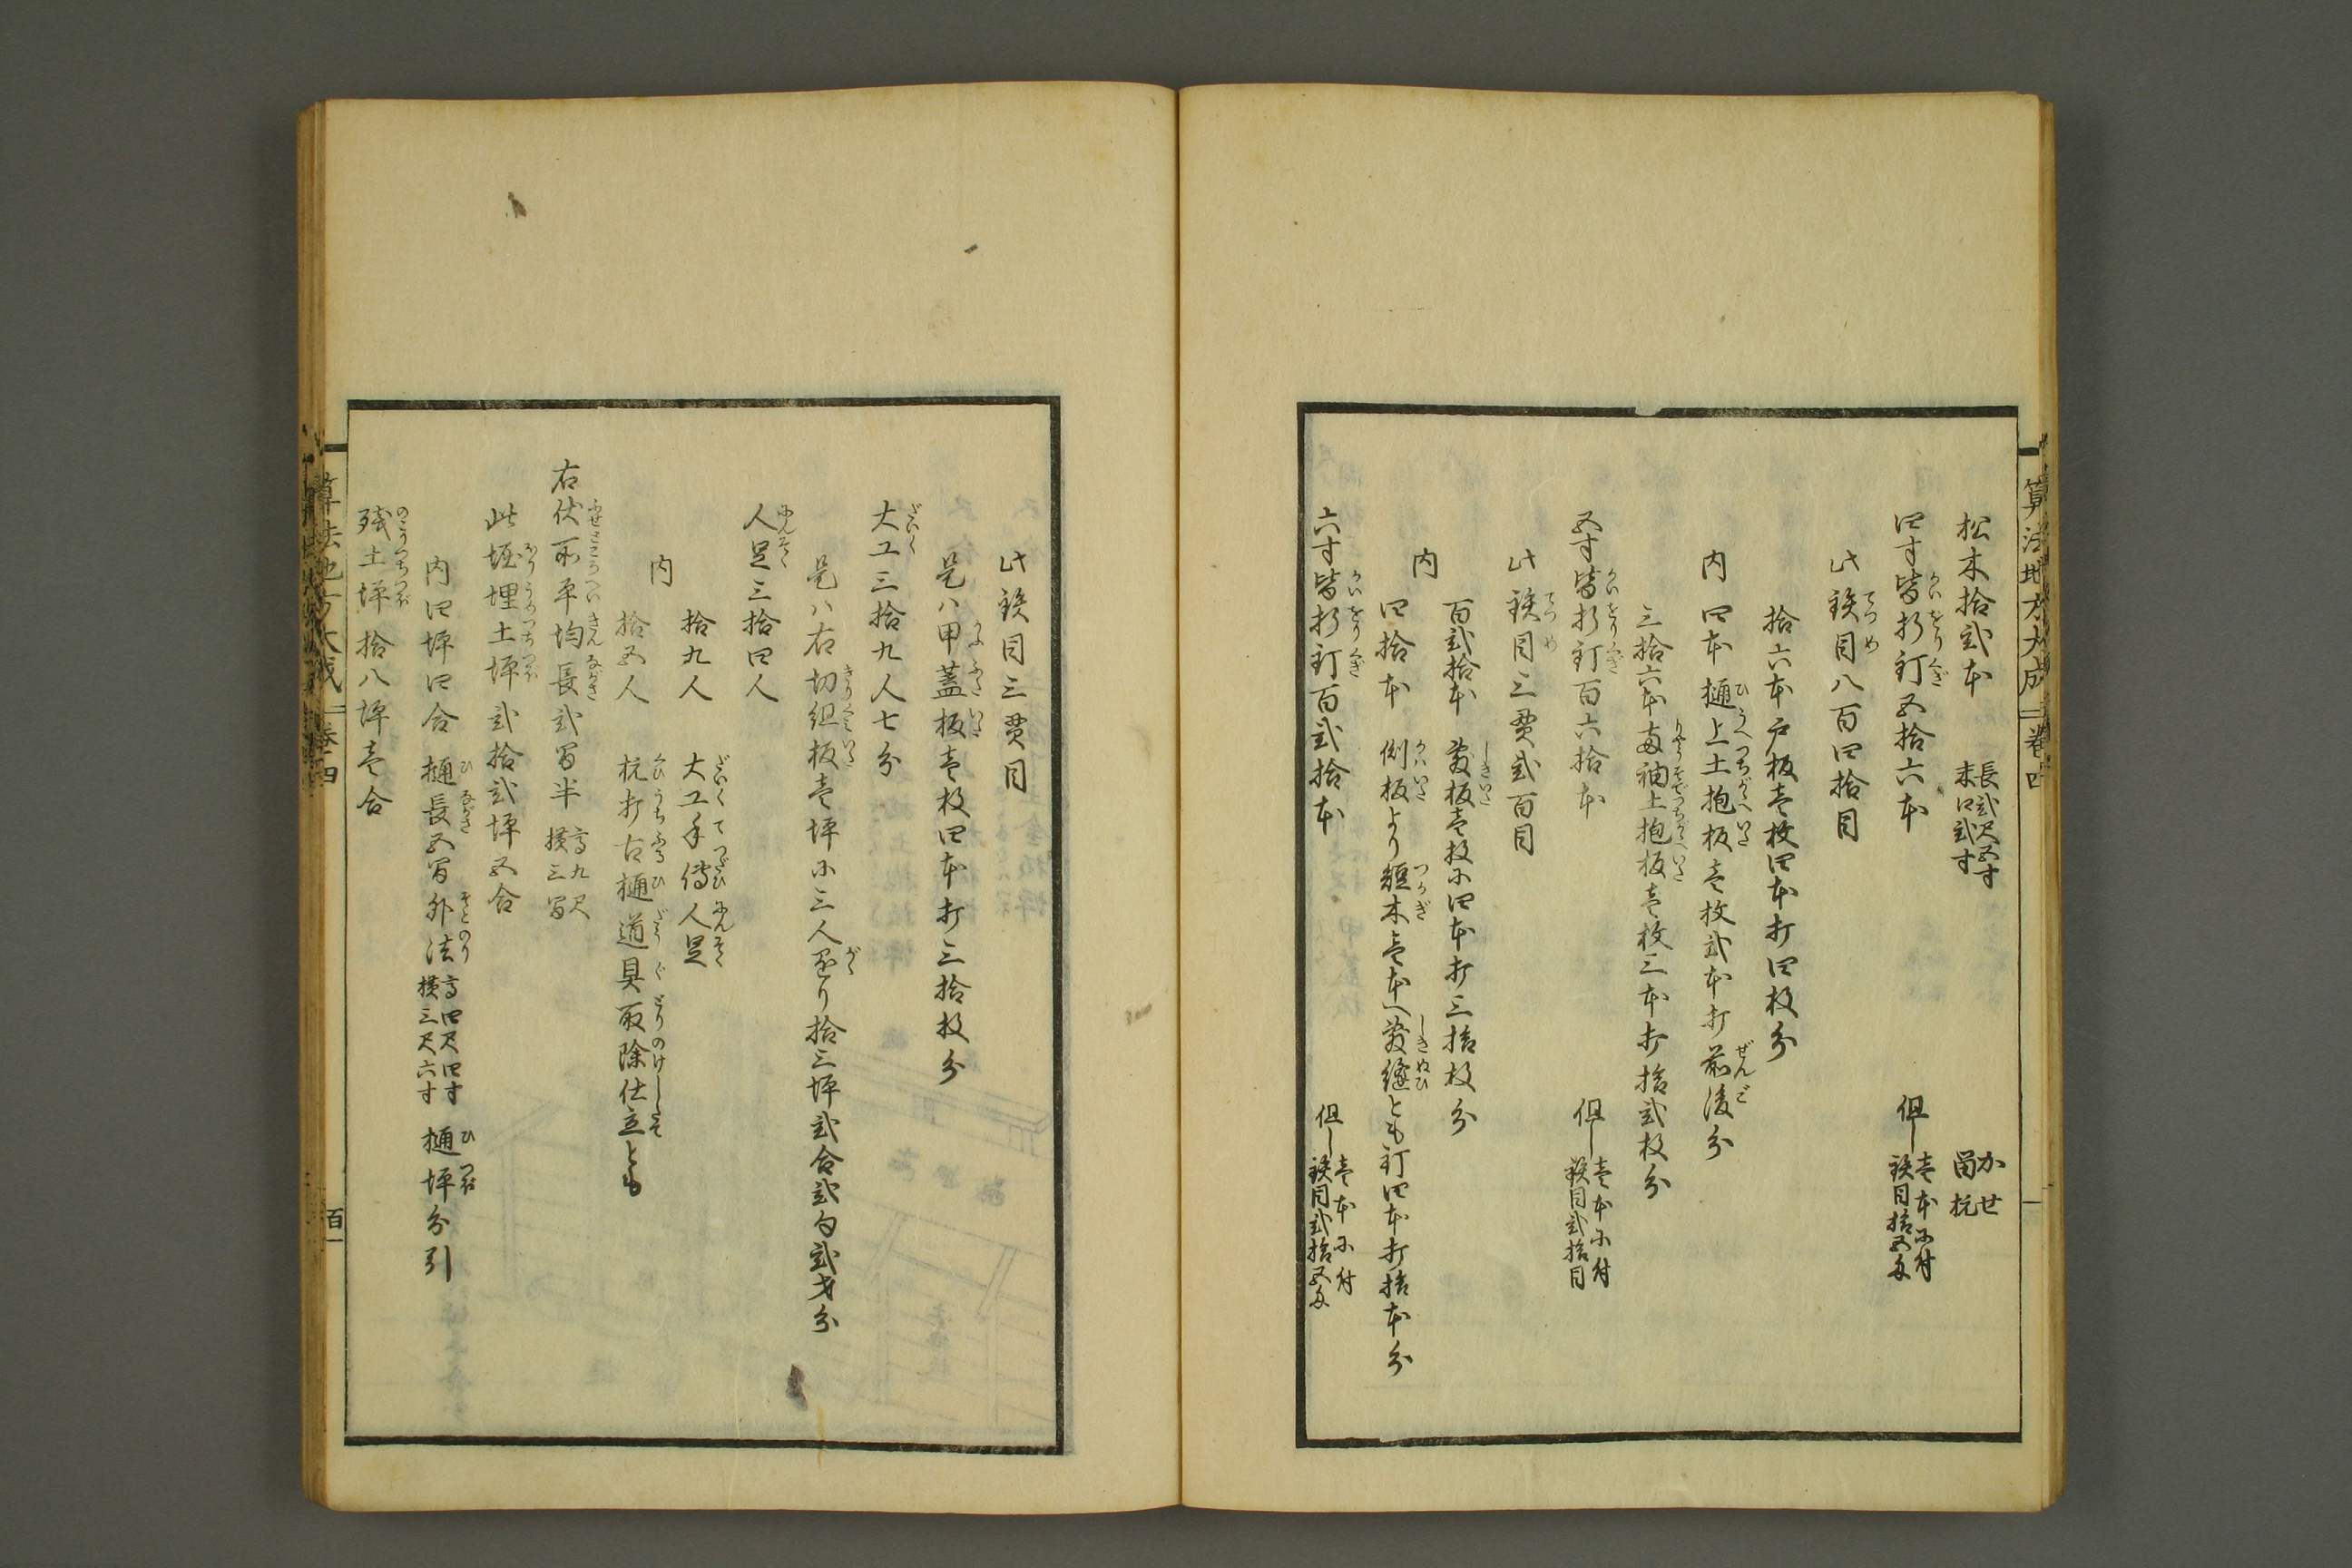 算法地方大成 巻四
松木拾弐本 長弐尺五寸 末口弐寸 かせ 留杭
四寸皆折釘五拾六本 但し壱本ニ付 鉄目拾五匁
此鉄目八百四拾目
拾六本戸板壱枚四本打四枚分
内 四本樋上土抱板壱枚弐本打前後分
三拾六本両袖土抱板壱枚三本打拾弐枚分
五寸皆折釘百六拾本 但し壱本ニ付 鉄目弐拾目
此鉄目三貫弐百目
百弐拾本 敷板壱枚ニ四本打三拾枚分
内
四拾本 側板より短木壱本へ敷縫とも釘四本打拾本分
六寸皆折釘百弐拾本 但し壱本ニ付 鉄目弐拾五匁
此鉄目三貫目
是ハ甲蓋板壱枚四本打三拾枚分
大工三拾九人七分
是ハ右切組板壱坪ニ三人 り拾三坪弐合弐勺弐才分
人足三拾四人
拾九人 大工手伝人足
内
拾五人 杭打古樋道具取除仕立とも
右伏所平均長弐間半 高九尺 横三間
此堀埋土坪弐拾弐坪五合
内四坪四合 樋長五間外法 高四尺四寸 横三尺六寸 樋坪分引
残土坪拾八坪壱合
算法地方大成 巻四 百一